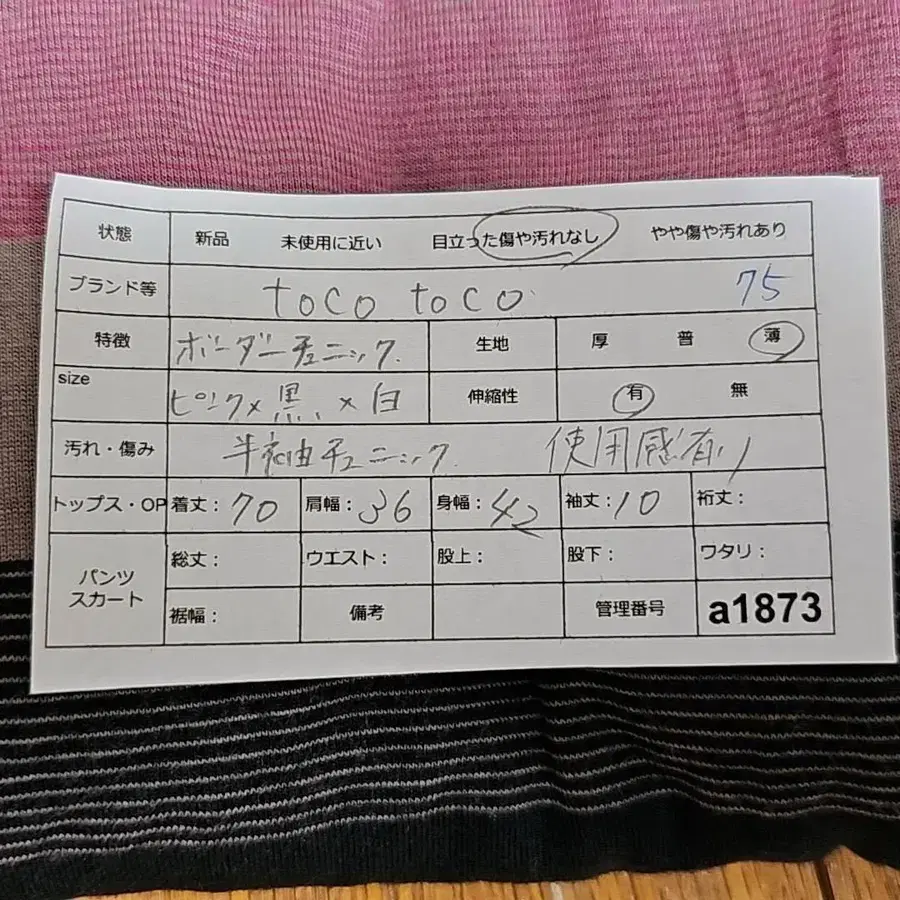 状態 新品 未使用に近い 目立った傷や汚れなし やや傷や汚れあり
ブランド等 toco toco 75
特徴 ボーダーチュニック 生地 厚 普 薄
size ピンク×黒×白 伸縮性 有 無
汚れ・傷み 半袖チュニック 使用感有り
トップス・OP 着丈:70 肩幅:36 身幅:42 袖丈:10 裄丈:
パンツ スカート 総丈: ウエスト: 股上: 股下: ワタリ:
裾幅: 備考 管理番号 a1873